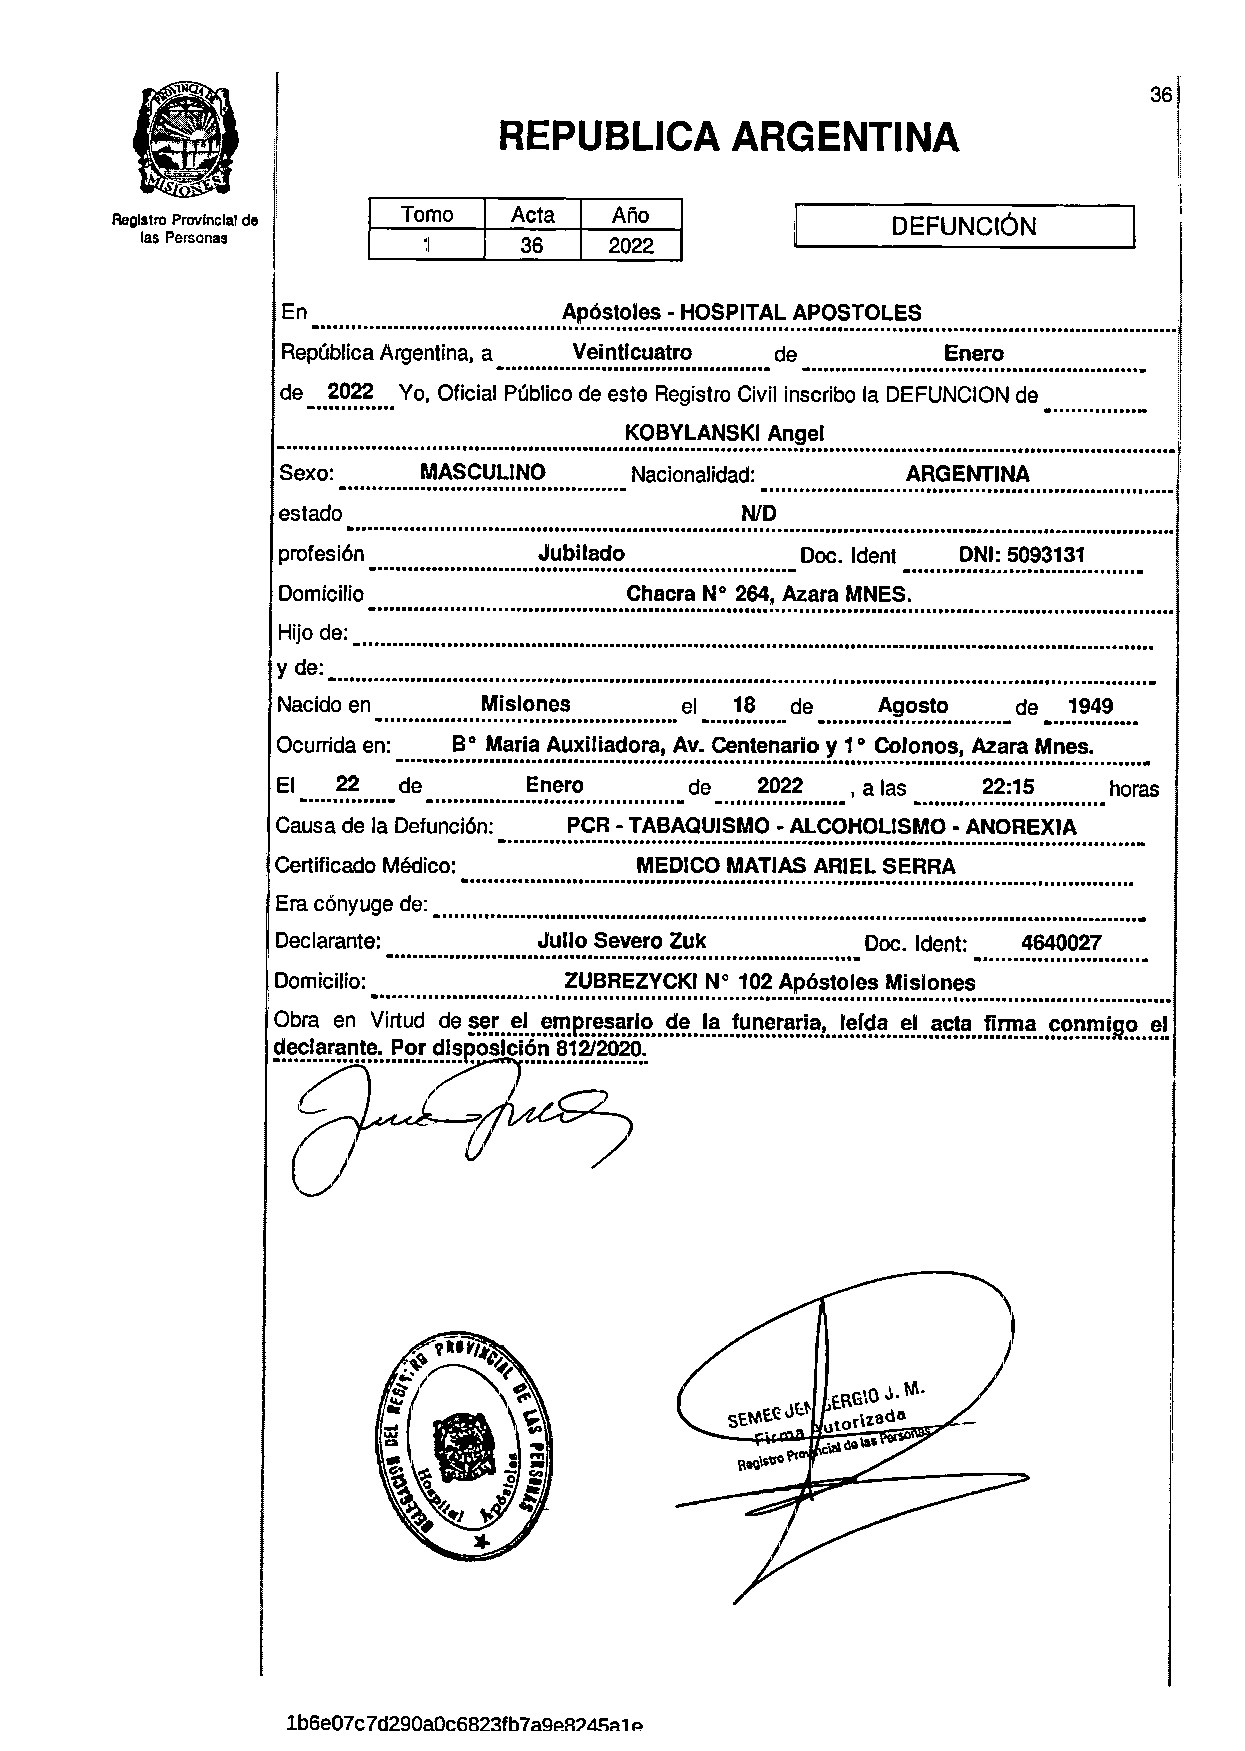 36
PROVINCIA DE
MISIONES
REPUBLICA ARGENTINA
Registro Provincial de
las Personas
Tomo Acta Año
1 36 2022
DEFUNCIÓN
En Apóstoles - HOSPITAL APOSTOLES
República Argentina, a Veinticuatro de Enero
de 2022 Yo, Oficial Público de este Registro Civil inscribo la DEFUNCION de
KOBYLANSKI Angel
Sexo: MASCULINO Nacionalidad: ARGENTINA
estado N/D
profesión Jubilado Doc. Ident DNI: 5093131
Domicilio Chacra N° 264, Azara MNES.
Hijo de:
y de:
Nacido en Misiones el 18 de Agosto de 1949
Ocurrida en: B° Maria Auxiliadora, Av. Centenario y 1° Colonos, Azara Mnes.
El 22 de Enero de 2022 , a las 22:15 horas
Causa de la Defunción: PCR - TABAQUISMO - ALCOHOLISMO - ANOREXIA
Certificado Médico: MEDICO MATIAS ARIEL SERRA
Era cónyuge de:
Declarante: Julio Severo Zuk Doc. Ident: 4640027
Domicilio: ZUBREZYCKI N° 102 Apóstoles Misiones
Obra en Virtud de ser el empresario de la funeraria, leída el acta firma conmigo el
declarante. Por disposición 812/2020.
DELEGACION DEL REGISTRO PROVINCIAL DE LAS PERSONAS
Hospital Apóstoles
SERGIO J. M.
Firma Autorizada
Registro Provincial de las Personas
1b6e07c7d290a0c6823fb7a9e8245a1e